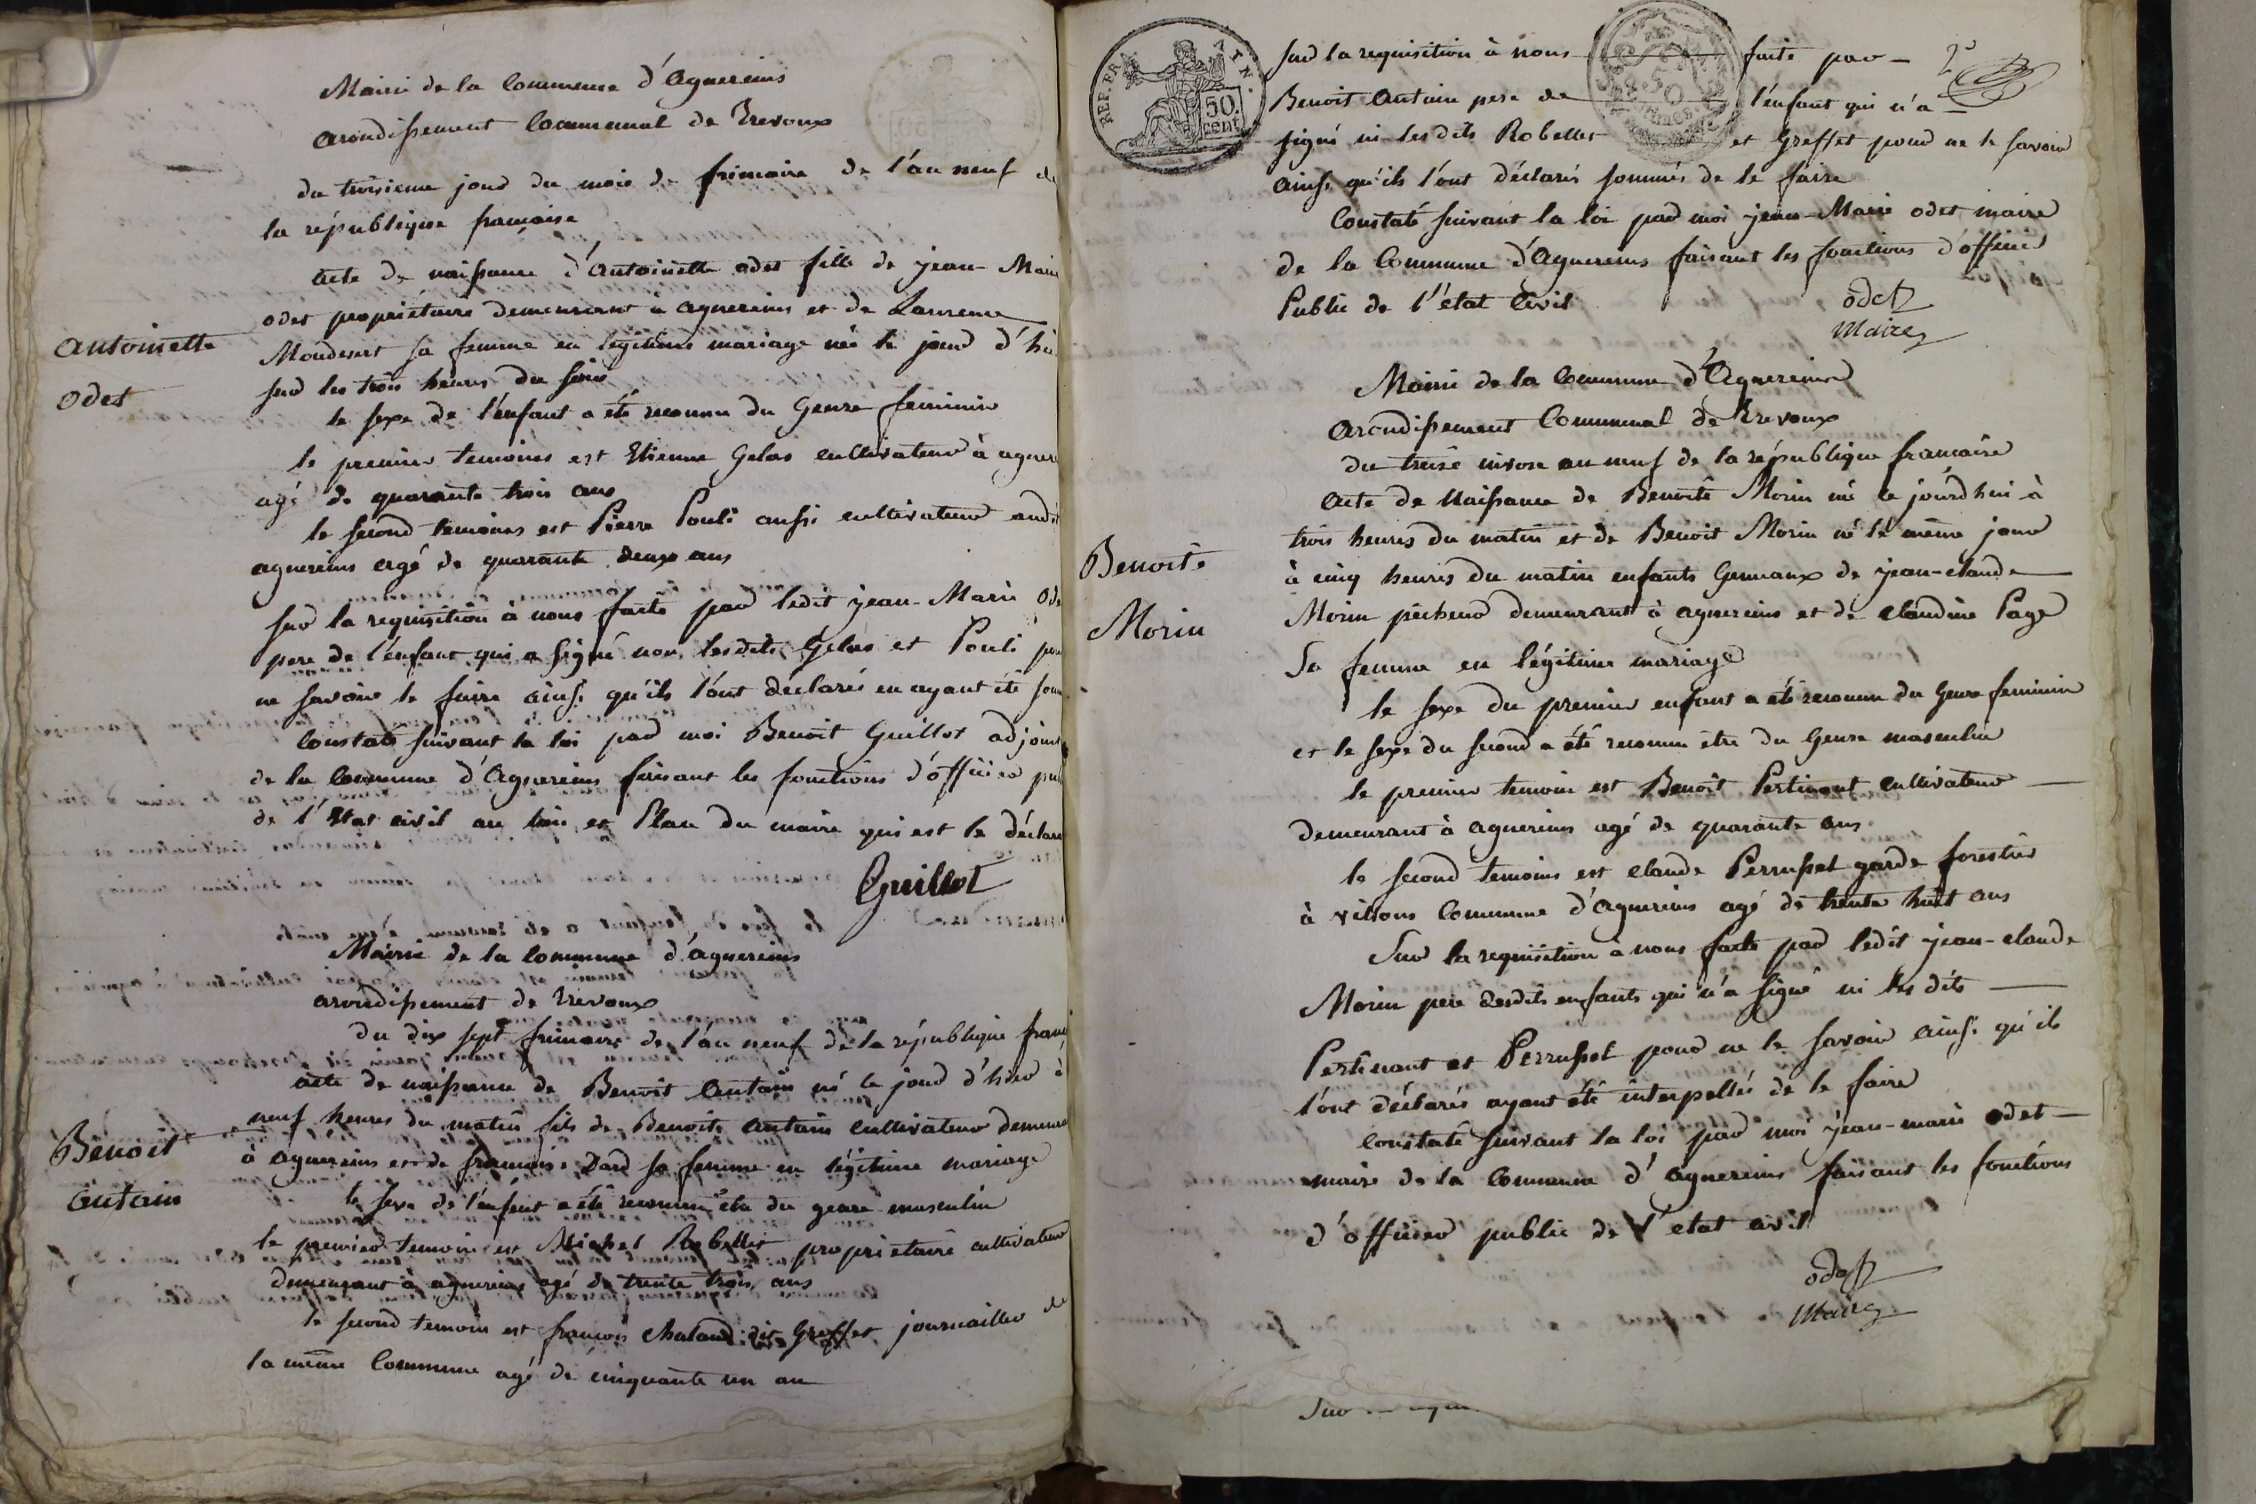 Mairie de la Commune d'Aguereins
arondissement Communal de Trevoux
du troisieme jour du mois de frimaire de l'an neuf de
la république française
acte de naissance d'Antoinette odet fille de jean-Marie
odet propriétaire demeurant à aguereins et de Laurence
Antoinette
Mondesert sa femme en légitime mariage née le jour d'hie
odet
sur les trois heures du soir
le sexe de l'enfant a été reconnu du Genre feminin
le premier temoins est Etienne Gelas cultivateur à aguer
agé de quarante trois ans
le second temoins est Pierre Pouli aussi cultivateur audit
aguereins agé de quarante deux ans
sur la requisition à nous faite par ledit jean-Marie Ode
pere de l'enfant qui a signé non lesdits Gelas et Pouli pour
ne savoir le faire ainsi qu'ils l'ont déclarés en ayant été som
Constaté suivant la loi par moi Benoit Guillot adjoint
de la Commune d'Aguereins faisant les fonctions d'officier pub
de l'Etat civil au lieu et Place du maire qui est le déclara
Guillot
Mairie de la Commune d'aguereins
arondissement de Trevoux
du dix sept frimaire de l'an neuf de la république franç
acte de naissance de Benoit Antain né le jour d'hier à
neuf heures du matin fils de Benoit Antain cultivateur demeura
Benoit
à aguereins et de françoise Dard sa femme en légitime mariage
antain
le sexe de l'enfant a été reconnu etre du genre masculin
le premier temoin est Michel Robellet propriétaire cultivateur
demeurant à aguereins agé de trente trois ans
le second temoin est françois Maland dit Greffet journaillier de
la même Commune agé de cinquante un an
REP. FRA. 50 cent
sur la requisition à nous faite par 2e
Benoit Antain pere de l'enfant qui n'a
signé ni lesdits Robellet et Greffet pour ne le savoir
ainsi qu'ils l'ont déclarés sommés de le faire
Constaté suivant la loi par moi jean-Marie odet maire
de la Commune d'Aguereins faisant les fonctions d'officier
Public de l'état Civil
odet
Maire
Mairie de la Commune d'Aguereins
arondissement Communal de Trevoux
du treise nivose an neuf de la république française
acte de Naissance de Benoite Morin né ce jourd'hui à
trois heures du matin et de Benoit Morin né le même jour
Benoite
à cinq heures du matin enfants Gemeaux de jean-claude
Morin
Morin pêcheur demeurant à aguereins et de claudine Page
Sa femme en légitime mariage
le sexe du premier enfant a été reconnu du Genre feminin
et le sexe du second a été reconnu être du Genre masculin
le premier temoin est Benoit Pertinant cultivateur
demeurant à aguereins agé de quarante ans
le second temoins est claude Perrusset garde forestier
à villions Commune d'aguereins agé de trente huit ans
Sur la requisition à nous faite par ledit jean-claude
Morin pere desdits enfants qui n'a signé ni les dits
Pertinant et Perrusset pour ne le savoir ainsi qu'ils
l'ont déclarés ayant été interpellés de le faire
constaté suivant la loi par moi jean-marie odet
maire de la Commune d'aguereins faisant les fonctions
d'officier public de l'etat civil
odet
Maire
Sur